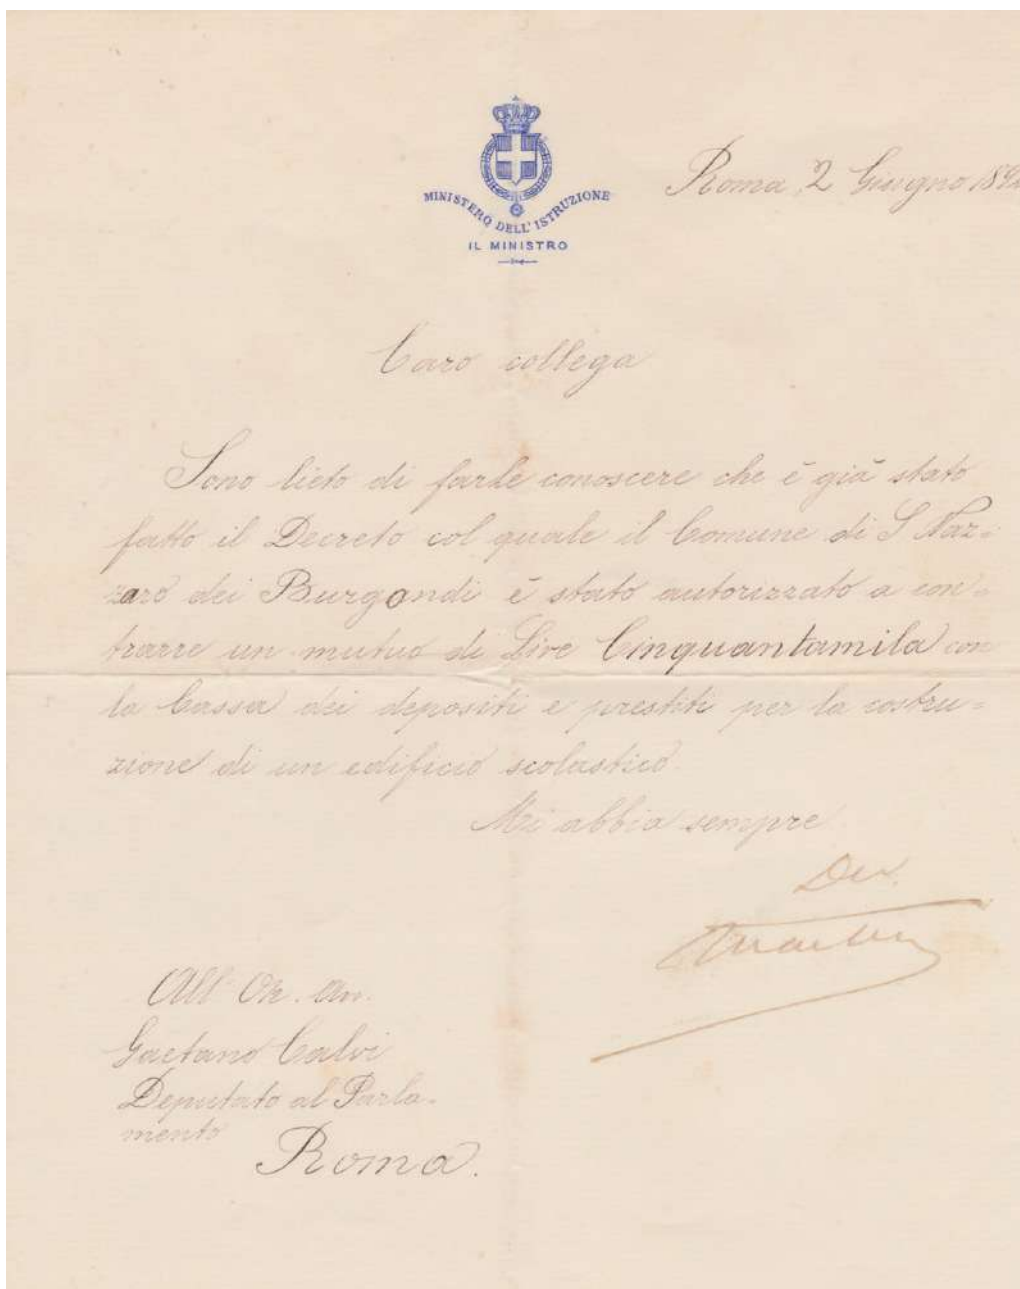 MINISTERO DELL'ISTRUZIONE
IL MINISTRO
Roma 2 Giugno 189
Caro collega
Sono lieto di farle conoscere che è già stato
fatto il Decreto col quale il Comune di S Naz-
zaro dei Burgondi è stato autorizzato a con-
trarre un mutuo di Lire Cinquantamila con
la Cassa dei depositi e prestiti per la costru-
zione di un edificio scolastico.
Mi abbia sempre
Dev.
All' On. Avv.
Gaetano Calvi
Deputato al Parla-
mento
Roma.